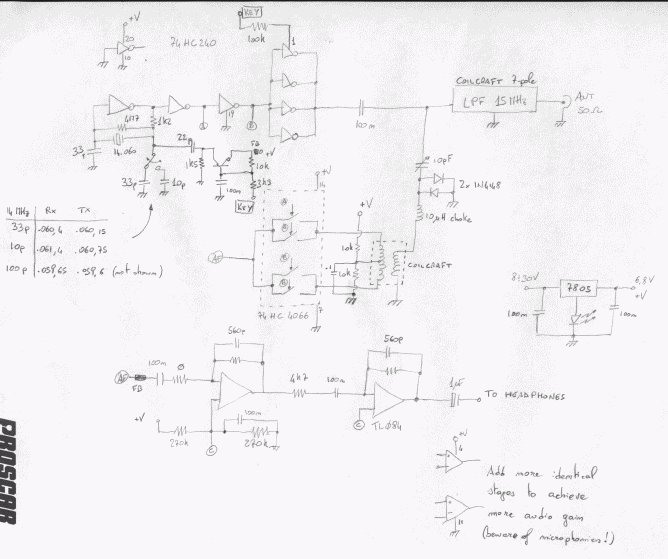 +V
20
10
74HC240
KEY
100k
1
COILCRAFT 7-pole
LPF 15MHz
ANT
50Ω
4M7
1k2
19
100m
14.060
33p
22p
1k5
FB
+V
10k
100m
3k3
KEY
33p
10p
10pF
2x 1N4148
10µH choke
14 MHz Rx Tx
33p .060,4 .060,15
10p .061,4 .060,75
100p .059,65 .059,6 (not shown)
+V
14
+V
10k
10k
.1
COILCRAFT
AF
7
74HC4066
8÷30V
7805
6,8V
+V
100m
100m
560p
560p
AF
FB
100m
Ø
4k7
100m
1µF
TO HEADPHONES
+V
270k
100m
270k
C
C
TLØ84
+V
4
11
Add more identical
stages to achieve
more audio gain
(beware of microphonics!)
PROSCAR